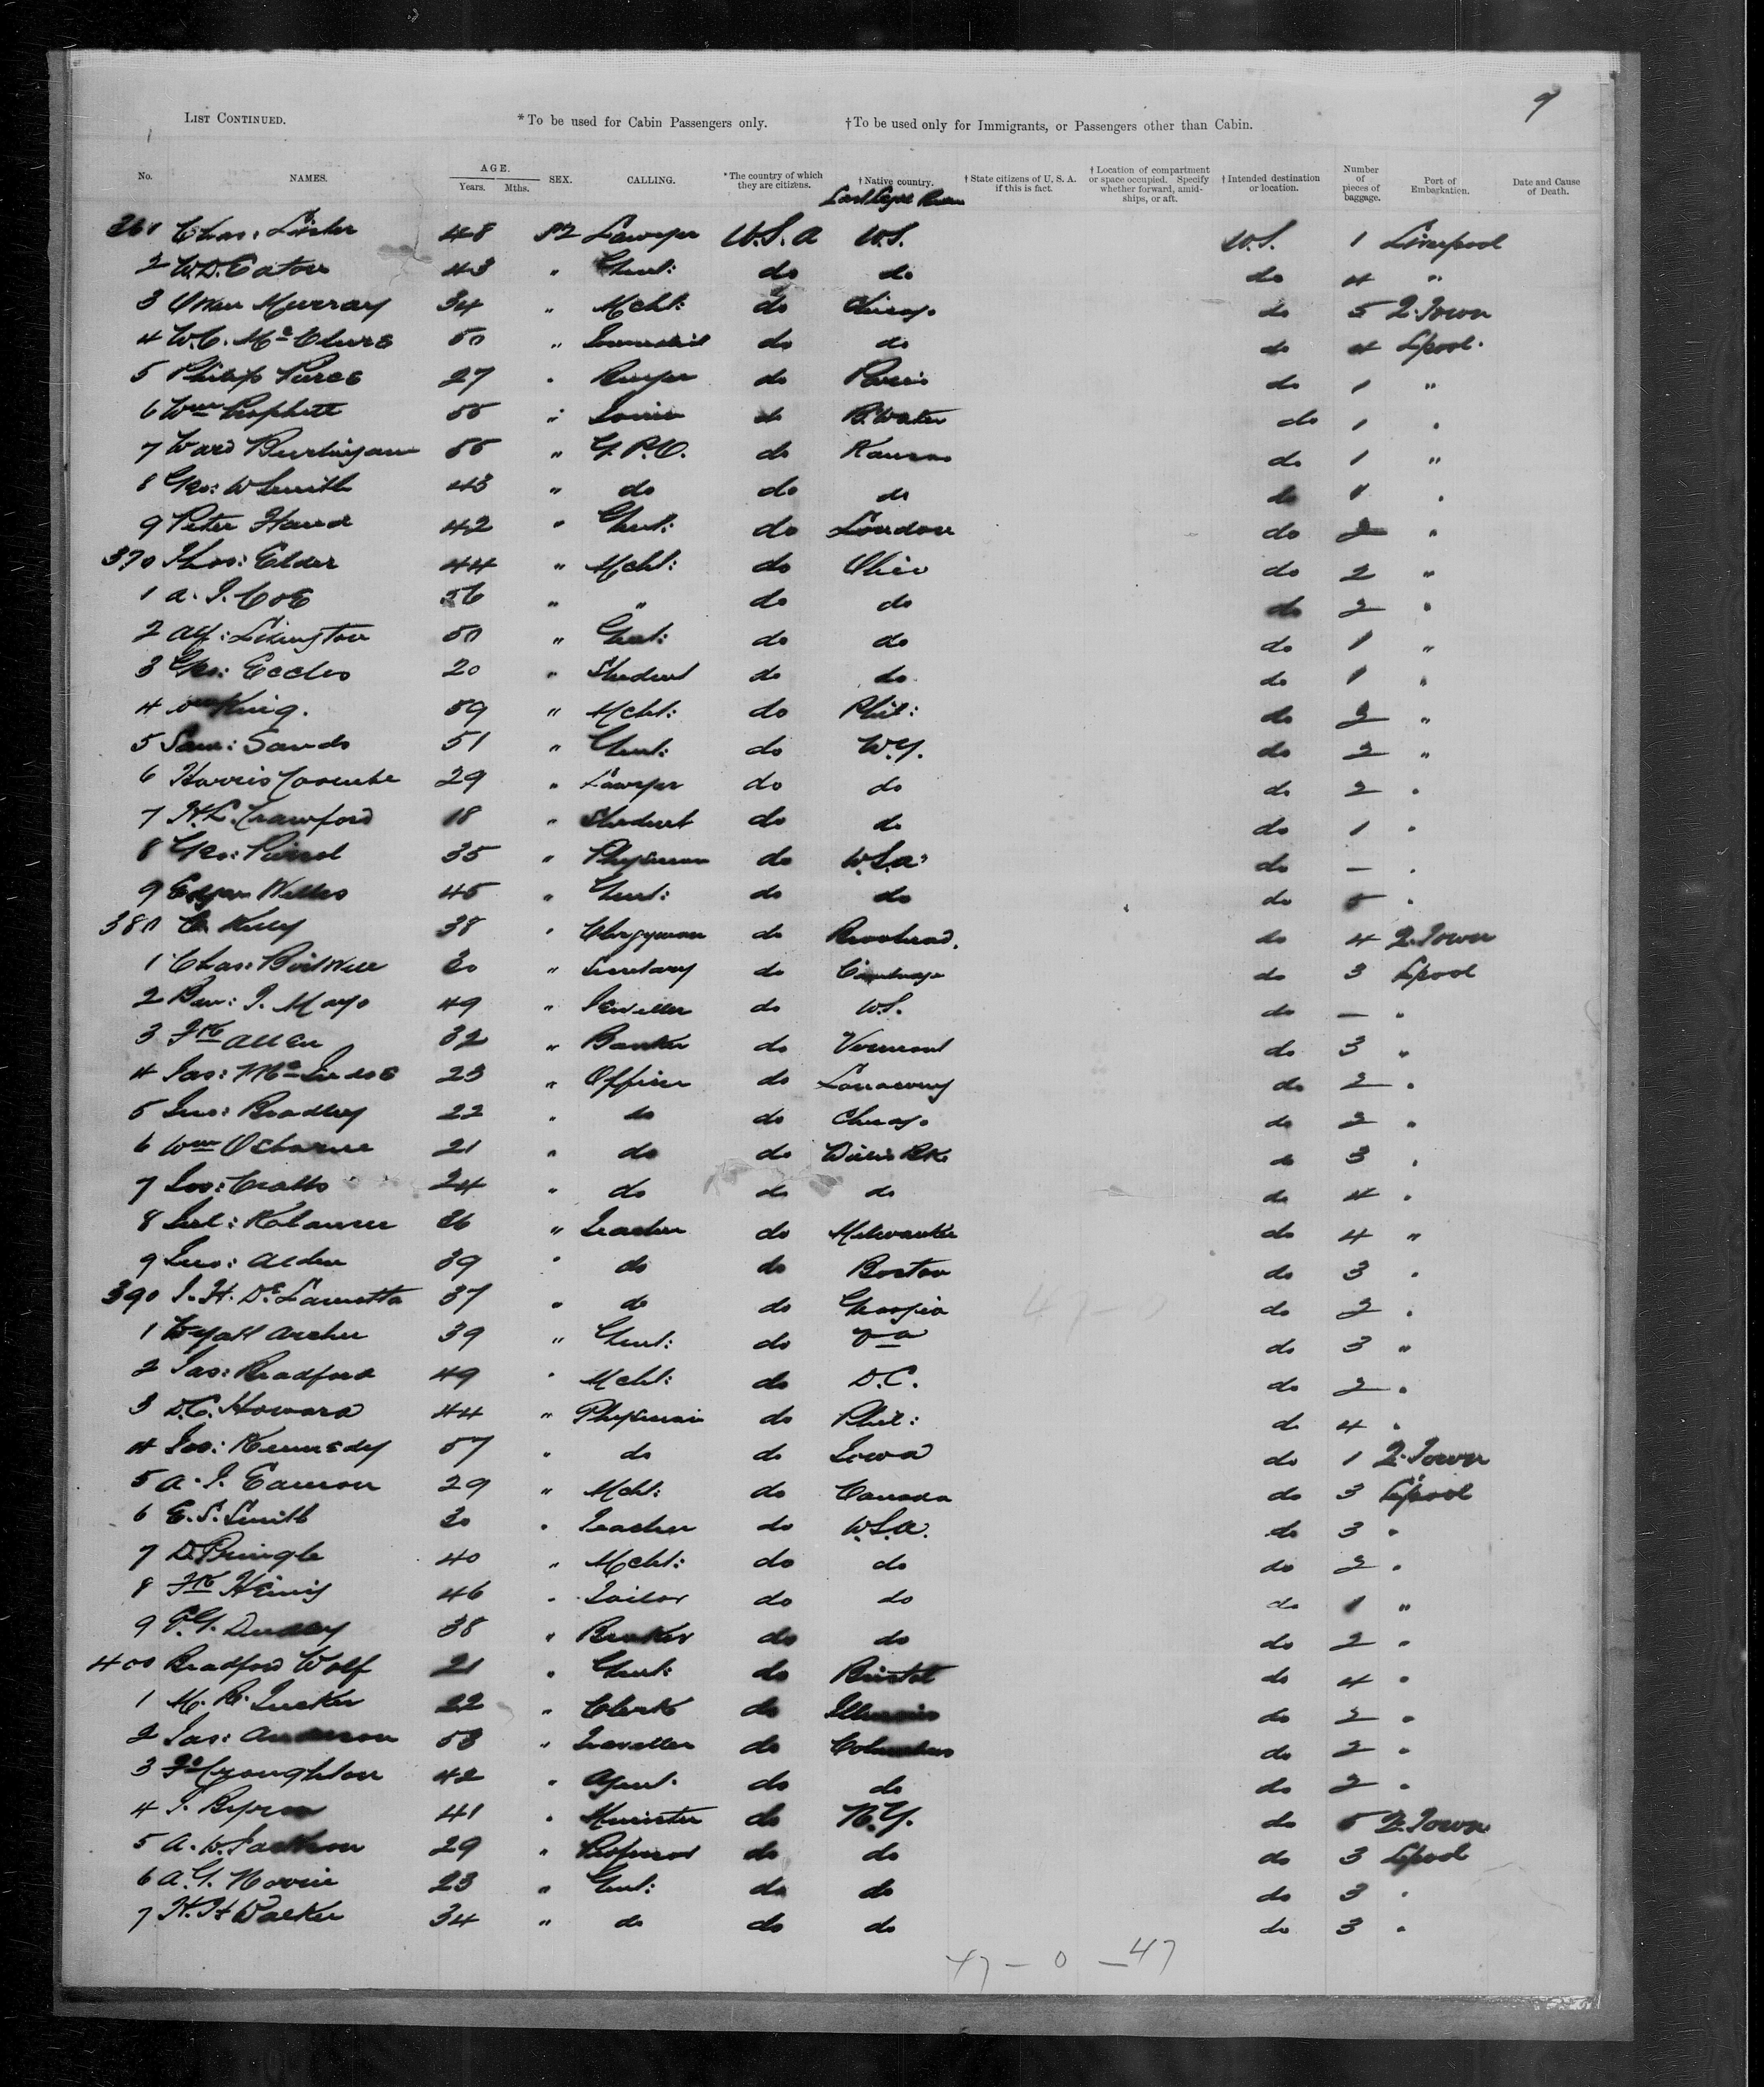 9
LIST CONTINUED. *To be used for Cabin Passengers only. †To be used only for Immigrants, or Passengers other than Cabin.
No. NAMES. AGE. Years. Mths. SEX. CALLING. *The country of which they are citizens. †Native country. †State citizens of U. S. A. if this is fact. †Location of compartment or space occupied. Specify whether forward, amidships, or aft. †Intended destination or location. Number of pieces of baggage. Port of Embarkation. Date and Cause of Death.
Last Legal
361 Chas: Lister 48 M Lawyer U.S.A U.S. U.S. 1 Liverpool
2 W.D. Eaton 43 " Gent: do do do 4 "
3 Murray 34 " Mcht: do Chicago do 5 Q. Town
4 W.C. McClure 50 " Journalist do do do 4 Lpool
5 Philip 27 " Buyer do Paris do 1 "
6 Wm Prophett 55 " do B. Water do 1 "
7 Ward Burlingame 55 " G.P.O. do Kansas do 1 "
8 Geo: W Smith 43 " do do do do 1 "
9 Peter Hand 42 " Gent: do London do 2 "
370 Thos: Elder 44 " Mcht: do Ohio do 2 "
1 A. J. Coe 56 " " do do do 2 "
2 Alf: Livingston 50 " Gent: do do do 1 "
3 Geo: Eccles 20 " Student do do do 1 "
4 King. 59 " Mcht: do Phil: do 2 "
5 Sam: Sands 51 " Gent: do N.Y. do 2 "
6 Harris 29 " Lawyer do do do 2 "
7 H.L. Crawford 18 " Student do do do 1 "
8 Geo: 35 " Physician do U.S.A. do — "
9 Edgar Welles 45 " Gent: do do do 5 "
380 Kelly 38 " Clergyman do do 4 Q. Town
1 Chas: 30 " Secretary do do 3 Lpool
2 Ben: J. Mayo 49 " Jeweller do U.S. do — "
3 Fk Allen 32 " Banker do Vermont do 3 "
4 Jas: 23 " Officer do do 2 "
5 Jno: Bradley 22 " do do Chicago do 2 "
6 Wm Osborne 21 " do do do 3 "
7 24 " do do do do 4 "
8 26 " Teacher do Milwaukee do 4 "
9 Jno: Alden 39 " do do Boston do 3 "
390 J. H. De Lamotta 37 " do do Georgia do 2 "
1 Wyatt Archer 39 " Gent: do Va do 3 "
2 Jas: Bradford 49 " Mcht: do D.C. do 2 "
3 D.C. Howard 44 " Physician do Phil: do 4 "
4 Jos: Kennedy 57 " do do Iowa do 1 Q. Town
5 A. J. 29 " Mcht: do Canada do 3 Lpool
6 E. S. Smith 30 " Teacher do U.S.A. do 3 "
7 D. Pringle 40 " Mcht: do do do 2 "
8 Fk 46 " Tailor do do do 1 "
9 Dudley 38 " Broker do do do 2 "
400 Bradford Wolf 21 " Gent: do Bristol do 4 "
1 M. B. Tucker 22 " Clerk do Illinois do 2 "
2 Jas: Anderson 53 " Traveller do Columbus do 2 "
3 Croughton 42 " Agent do do do 2 "
4 J. Byron 41 " Minister do N.Y. do 5 Q. Town
5 A. W. Jackson 29 " Professor do do do 3 Lpool
6 A. G. Norrie 23 " Gent: do do do 3 "
7 H. H Walker 34 " do do do do 3 "
47 — 0 — 47